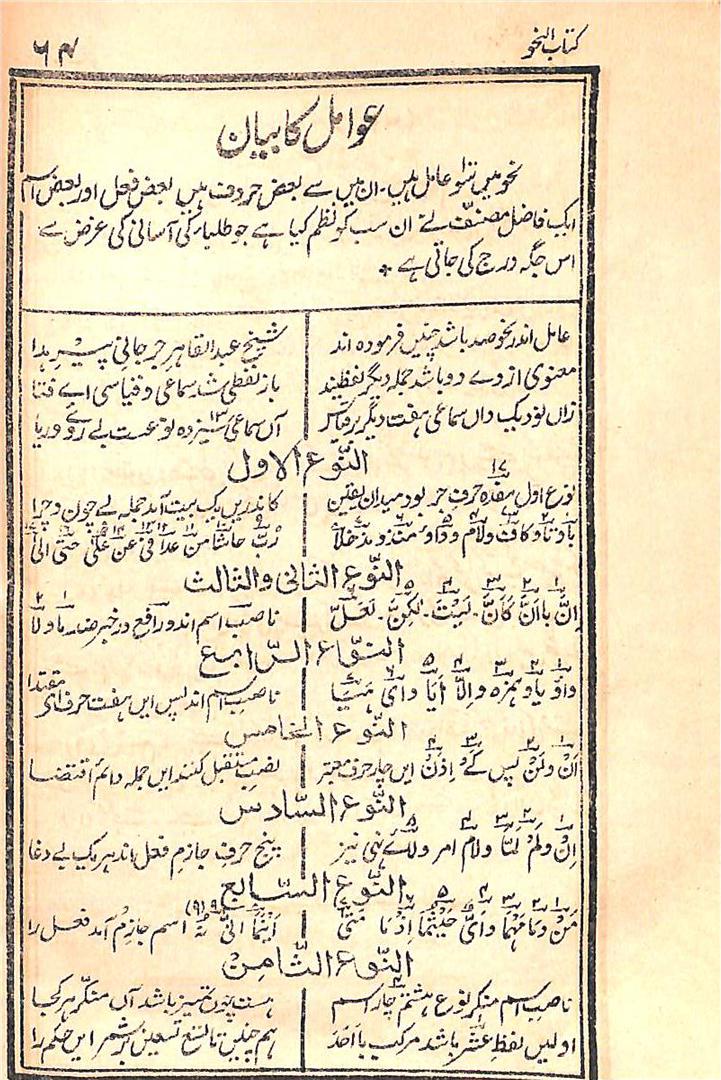 کتاب النحو
۶۴
عوامل کا بیان
نحو میں سو عامل ہیں۔ ان میں سے بعض حروف ہیں بعض فعل اور بعض اسم
ایک فاضل مصنف نے ان سب کو نظم کیا ہے جو طلباء کی آسانی کی غرض سے
اس جگہ درج کی جاتی ہے *
عامل اندر نحو صد باشد چنیں فرمودہ اند شیخ عبدالقاہر جرجانی پیر ہدا
معنوی ازوے دو باشد جملہ دیگر لفظیند باز لفظی شد سماعی و قیاسی اے فتا
زاں نود یک داں سماعی ہفت دیگر بر قیاس آں سماعی سیزدہ نوعست بے روے و ریا
النّوع الاول
نوع اول ہفدہ حرف جر بود میداں یقین کاندریں یک بیت آمد جملہ بے چون و چرا
باؤ تاؤ کاف و لام و واؤ منذ و مذ خلا رُبَّ حاشا من عدا فی عن علی حتی الی
النّوع الثانی والثالث
اِنَّ با اَنَّ کَاَنَّ۔ لَیْتَ۔ لٰکِنَّ۔ لَعَلَّ ناصب اسم اند و رافع در خبر ضد ما و لا
النّوع الرّابع
واؤ یاو ہمزہ و اِلّا اَیَا و اَیْ ھَیَا ناصب اسم اند پس ایں ہفت حرف اے مقتدا
النّوع الخامس
اَنْ وَلَنْ پس کَیْ اِذَنْ ایں چار حرف معتبر نصب مستقبل کنند ایں جملہ دائم اقتضا
النّوع السّادس
اِنْ وَلَمْ لَمَّا و لام امر و لائے نہی نیز پنج حرف جازم فعل اند ہر یک بے دغا
النّوع السّابع
مَنْ وَ مَا مَہْمَا وَ اَیُّ حَیْثُمَا اِذْ مَا مَتٰی اَیْنَمَا اَنّٰی نُہ (۹) اسم جازم آمد فعل را
النّوع الثّامن
ناصب اسم منکر نوع ہشتم چار اسم ہست چوں تمیز باشد آں منکر ہر کجا
اولیں لفظ عشر باشد مرکب با اَحَد ہم چنیں تا تسع تسعین بر شمر ایں حکم را